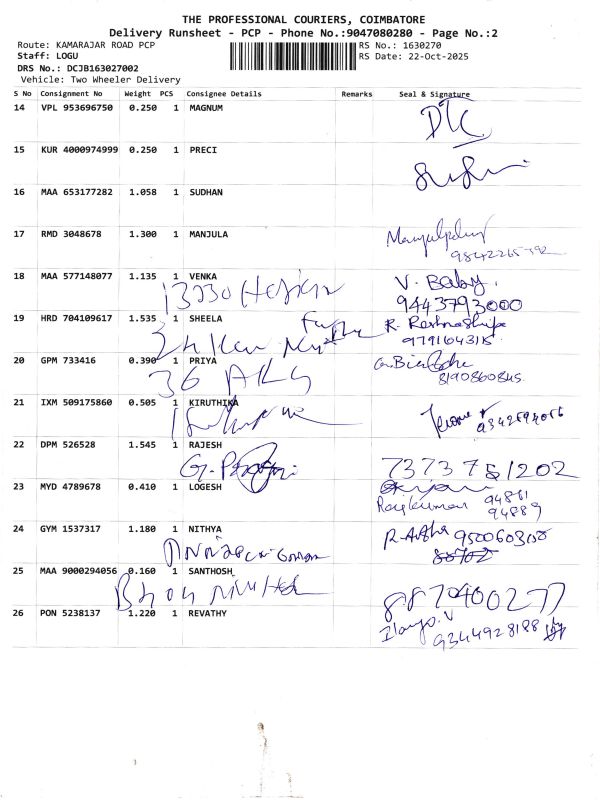 THE PROFESSIONAL COURIERS, COIMBATORE
Delivery Runsheet - PCP - Phone No.:9047080280 - Page No.:2
Route: KAMARAJAR ROAD PCP RS No.: 1630270
Staff: LOGU RS Date: 22-Oct-2025
DRS No.: DCJB163027002
Vehicle: Two Wheeler Delivery
S No Consignment No Weight PCS Consignee Details Remarks Seal & Signature
14 VPL 953696750 0.250 1 MAGNUM DTC
15 KUR 4000974999 0.250 1 PRECI
16 MAA 653177282 1.058 1 SUDHAN
17 RMD 3048678 1.300 1 MANJULA
18 MAA 577148077 1.135 1 VENKA V. Baby.
9443793000
19 HRD 704109617 1.535 1 SHEELA
9791164315
20 GPM 733416 0.390 1 PRIYA
8190860845
36
21 IXM 509175860 0.505 1 KIRUTHIKA
22 DPM 526528 1.545 1 RAJESH
7373751202
23 MYD 4789678 0.410 1 LOGESH
Rajkumar 94881
94889
24 GYM 1537317 1.180 1 NITHYA
25 MAA 9000294056 0.160 1 SANTHOSH
8870400277
26 PON 5238137 1.220 1 REVATHY Ilango. V
9344928188